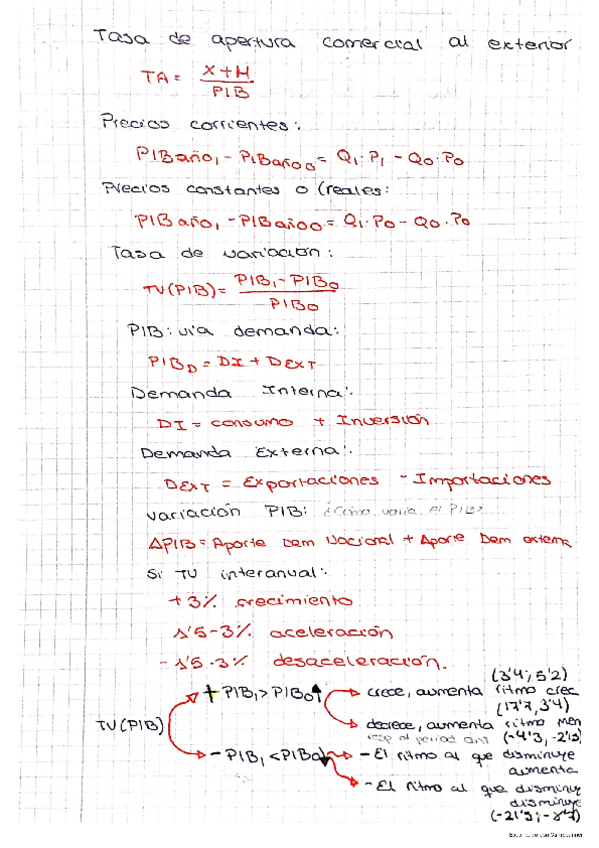 Tasa de apertura comercial al exterior
TA = X+M / PIB
Precios corrientes:
PIBaño₁ - PIBaño₀ = Q₁·P₁ - Q₀·P₀
Precios constantes o (reales:
PIBaño₁ - PIBaño₀ = Q₁·P₀ - Q₀·P₀
Tasa de variación:
TV(PIB) = PIB₁ - PIB₀ / PIB₀
PIB: vía demanda:
PIB_D = DI + DEXT
Demanda Interna:
DI = consumo + Inversión
Demanda Externa:
DEXT = Exportaciones - Importaciones
variación PIB: ¿Cómo varía el PIB?
ΔPIB = Aporte Dem Nacional + Aporte Dem externa
Si TV interanual:
+3% crecimiento
1'5-3% aceleración
-1'5-3% desaceleración.
(3'4; 5'2)
+ PIB₁ > PIB₀ crece, aumenta ritmo crec
(17'7, 3'4)
TV(PIB)
decrece, aumenta ritmo men
(-4'3, -2'15)
- PIB₁ < PIB₀ - El ritmo al que disminuye
aumenta
- El ritmo al que disminuye
disminuye